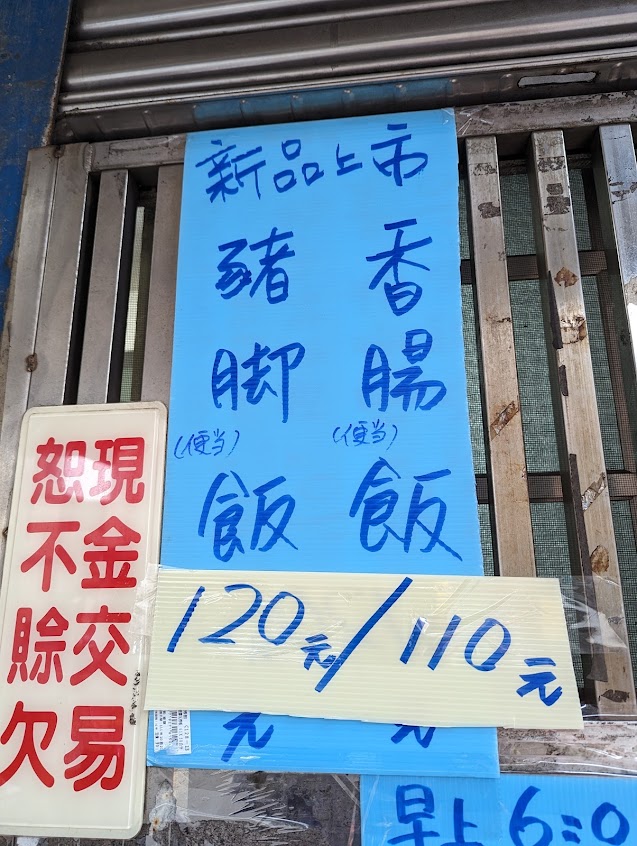 新品上市
香腸(便当)飯
豬脚(便当)飯
120元/110元
元
元
現金交易
恕不賒欠
早上6:0